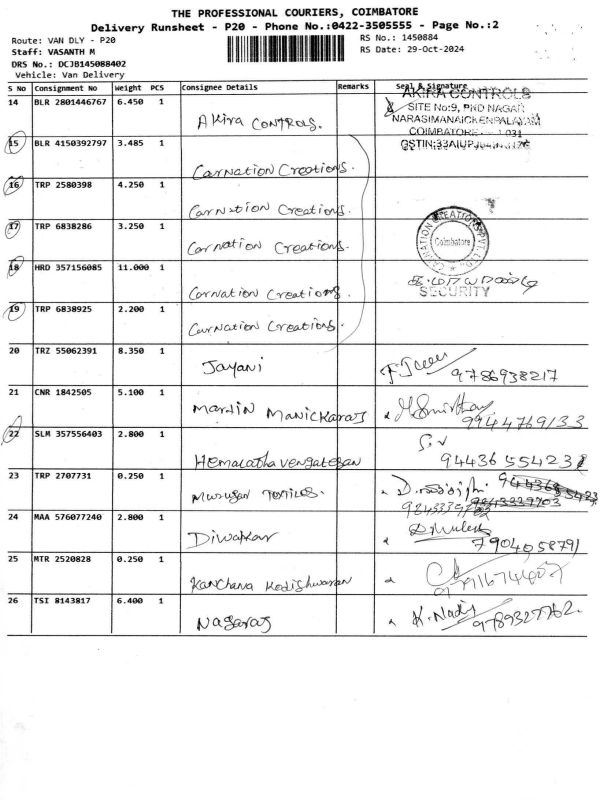 THE PROFESSIONAL COURIERS, COIMBATORE
Delivery Runsheet - P20 - Phone No.:0422-3505555 - Page No.:2
Route: VAN DLY - P20
RS No.: 1450884
Staff: VASANTH M
RS Date: 29-Oct-2024
DRS No.: DCJB145088402
Vehicle: Van Delivery
S No Consignment No Weight PCS Consignee Details Remarks Seal & Signature
14 BLR 2801446767 6.450 1 Akira CONTROLS.
AKIRA CONTROLS
SITE No:9, PND NAGAR
NARASIMANAICKENPALAYAM
COIMBATORE
15 BLR 4150392797 3.485 1 Carnation Creations.
16 TRP 2580398 4.250 1 Carnation Creations.
17 TRP 6838286 3.250 1 Carnation Creations.
Coimbatore
18 HRD 357156085 11.000 1 Carnation Creations.
SECURITY
19 TRP 6838925 2.200 1 Carnation Creations.
20 TRZ 55062391 8.350 1 Jayani 9786938217
21 CNR 1842505 5.100 1 Martin Manickaraj 9944769133
22 SLM 357556403 2.800 1 Hemalatha Vengatesan
23 TRP 2707731 0.250 1 Murugan Textiles.
24 MAA 576077240 2.800 1 Diwakar 7904058791
25 MTR 2520828 0.250 1 Kanchana Kodishwaran
26 TSI 8143817 6.400 1 Nagaraj 9789327762.